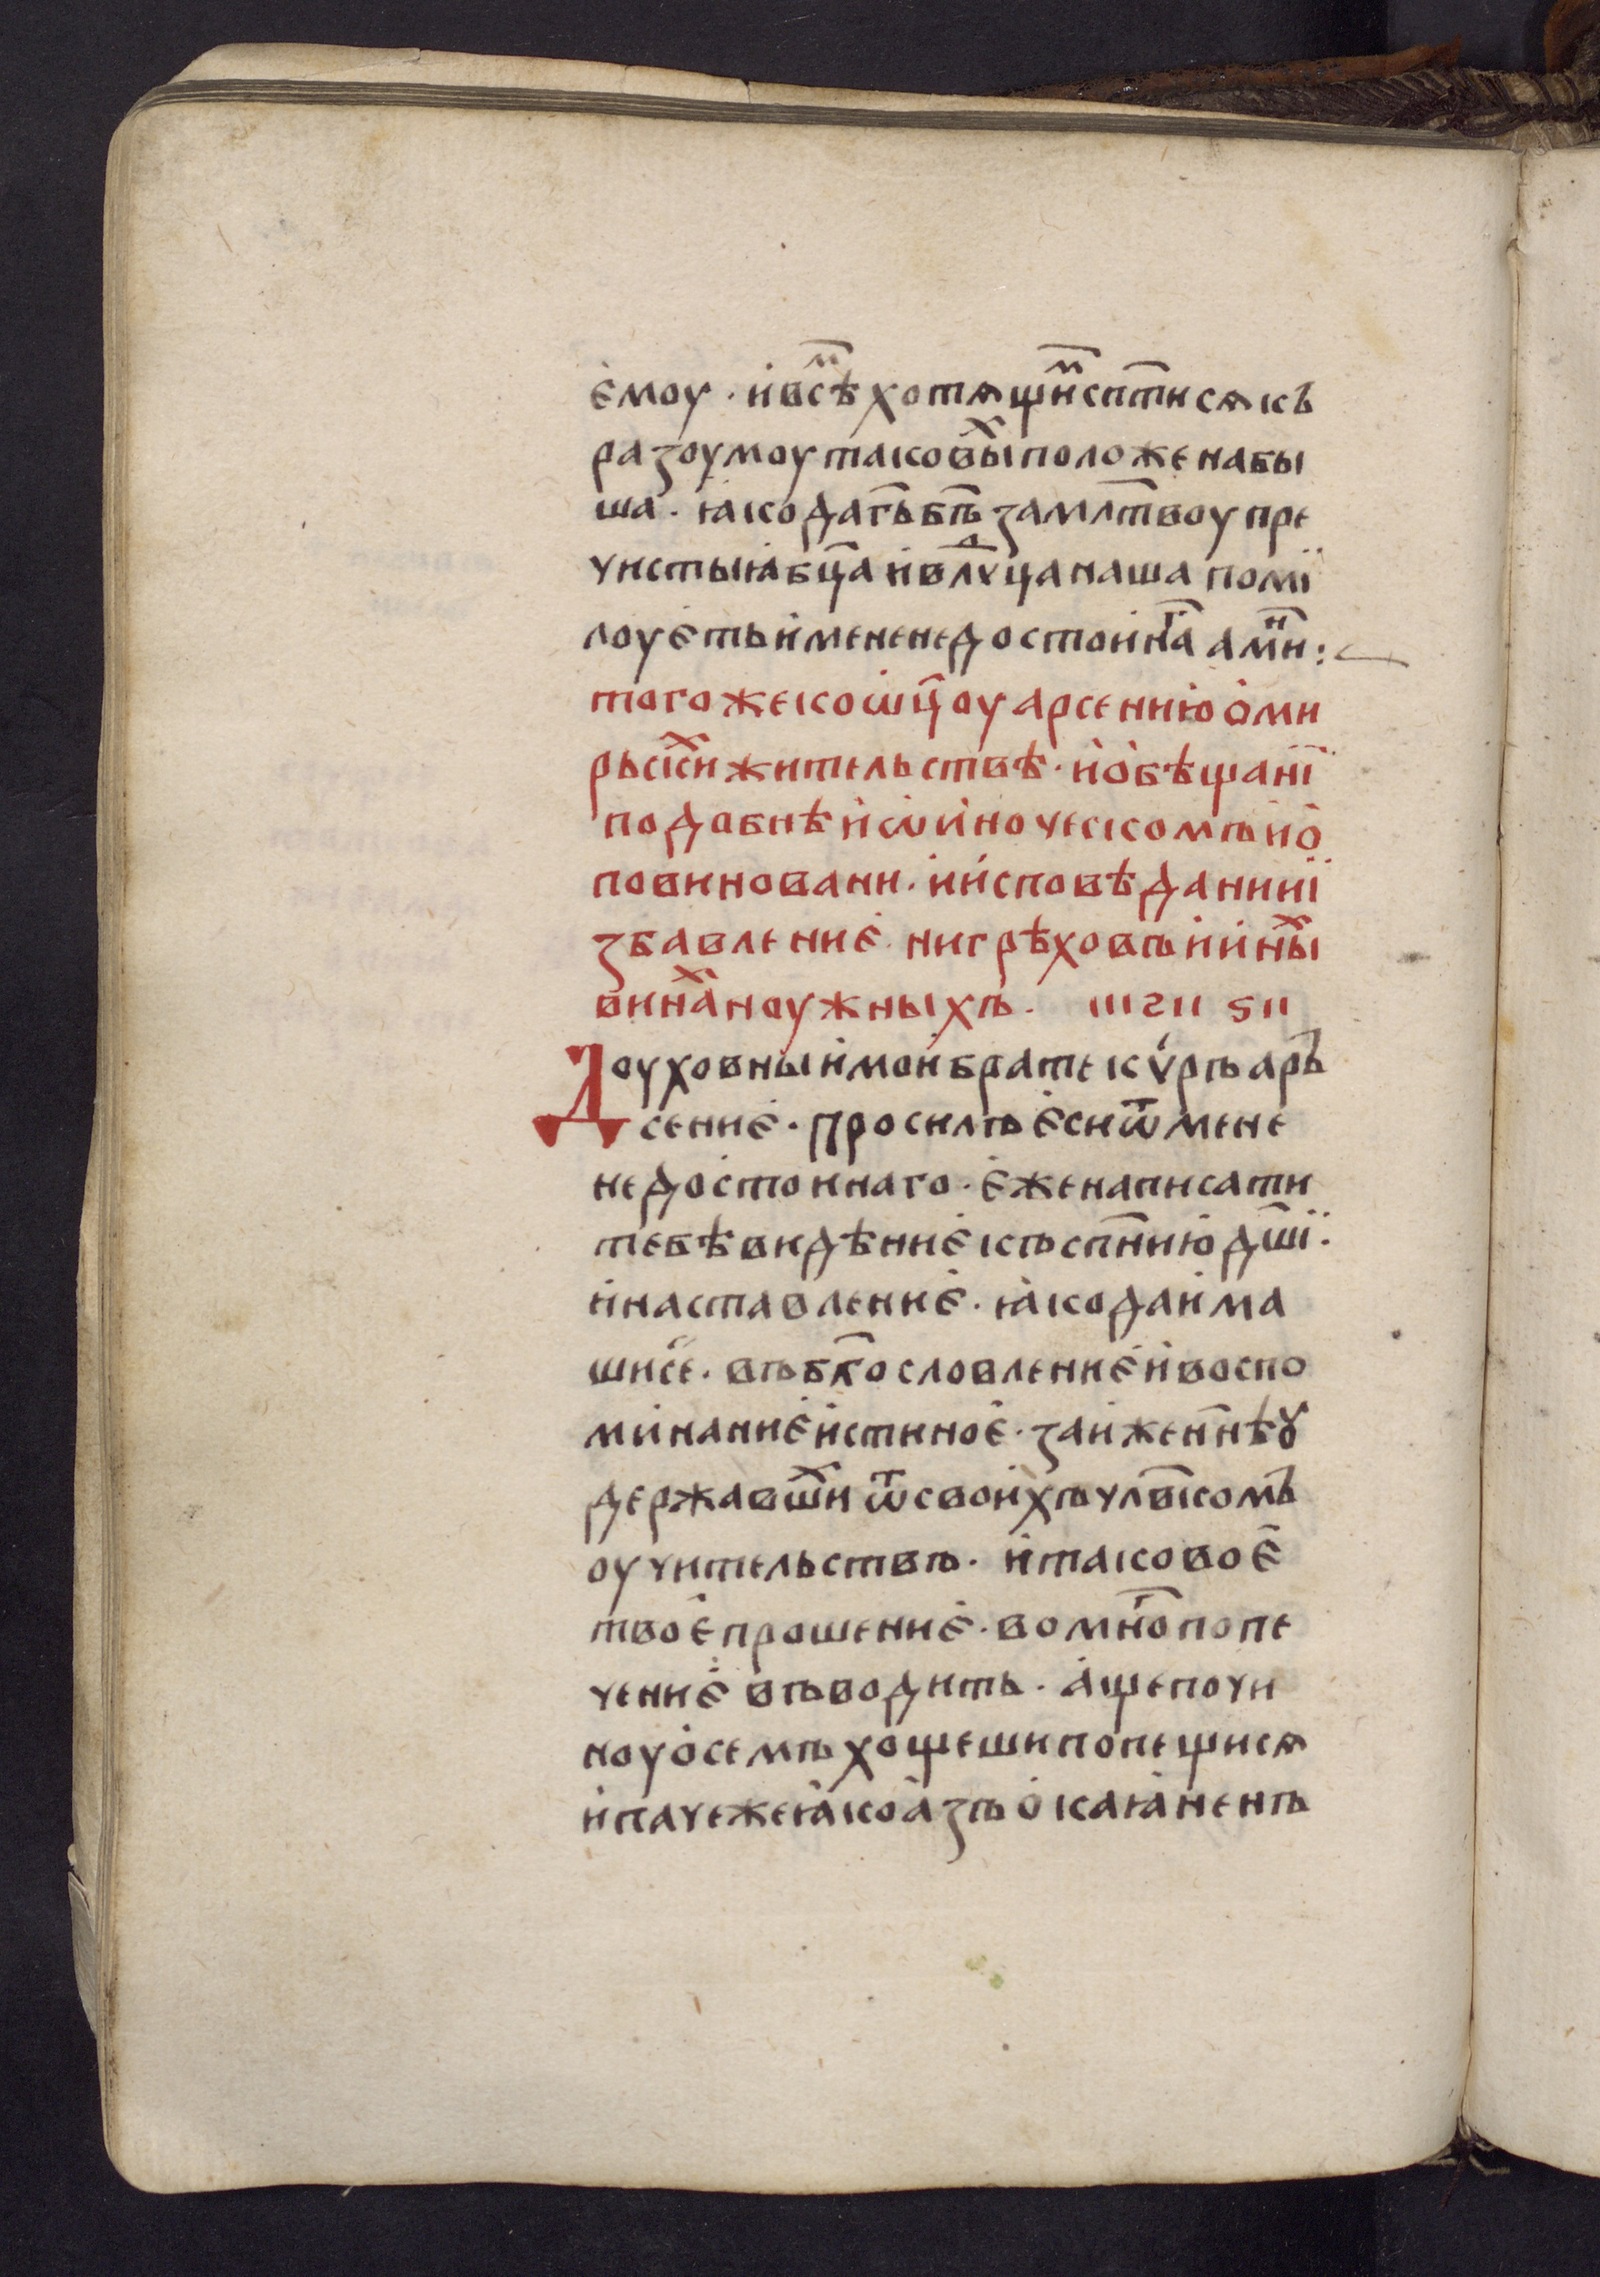 є҆моу · и҆всѣⷨ҇ хотѧщиⷨ҇ сп҃тисѧ къ
разоумоу таковыⷯ положенабы
ша · ꙗкодагь б҃ъ замл҃твоу пре
чистыꙗ҆ бц҃а и҆влⷣчца наша помї
лоує҆ть и҆мене недостоинаⷢ҇ амиⷩ҇ :
тогоже коѡц҃оу арсению҆ о҆ми
рьскиⷯ жительствѣ · и҆о҆бѣщанї
подобнѣ и҆ѡ и҆ноческомъ и҆о҆
повиновани · и҆и҆сповѣданиї
збавлениє҆ ни грѣховъ и҆и҆ныⷯ
винаⷯ ноужныхъ ·
Доуховныи҆ мои҆ брате кѵ́ръ арь
сениє҆ · просилъ є҆си ѿ мене
недостоинаго · є҆же написати
тебѣ видѣниє҆ къ сп҃нию҆ дш҃ї ·
и҆наставлениє҆ · ꙗ҆ко даи҆ма
шисе · въ бг҃ословлениє҆ и҆воспо
минаниє҆ и҆стиноє҆ · заи҆же н҃нѣ ꙋ
державшиⷯ ѿ свои҆хъ чл҃вкомъ
оучительствъ · и҆таковоє҆
твоє҆ прошениє҆ · во мноⷢ҇ попе
чениє҆ въводить · а҆ще по чи
ноу о҆семъ хощеши попещисѧ
и҆паче же ꙗ҆ко а҆зъ о҆каꙗ҆ненъ